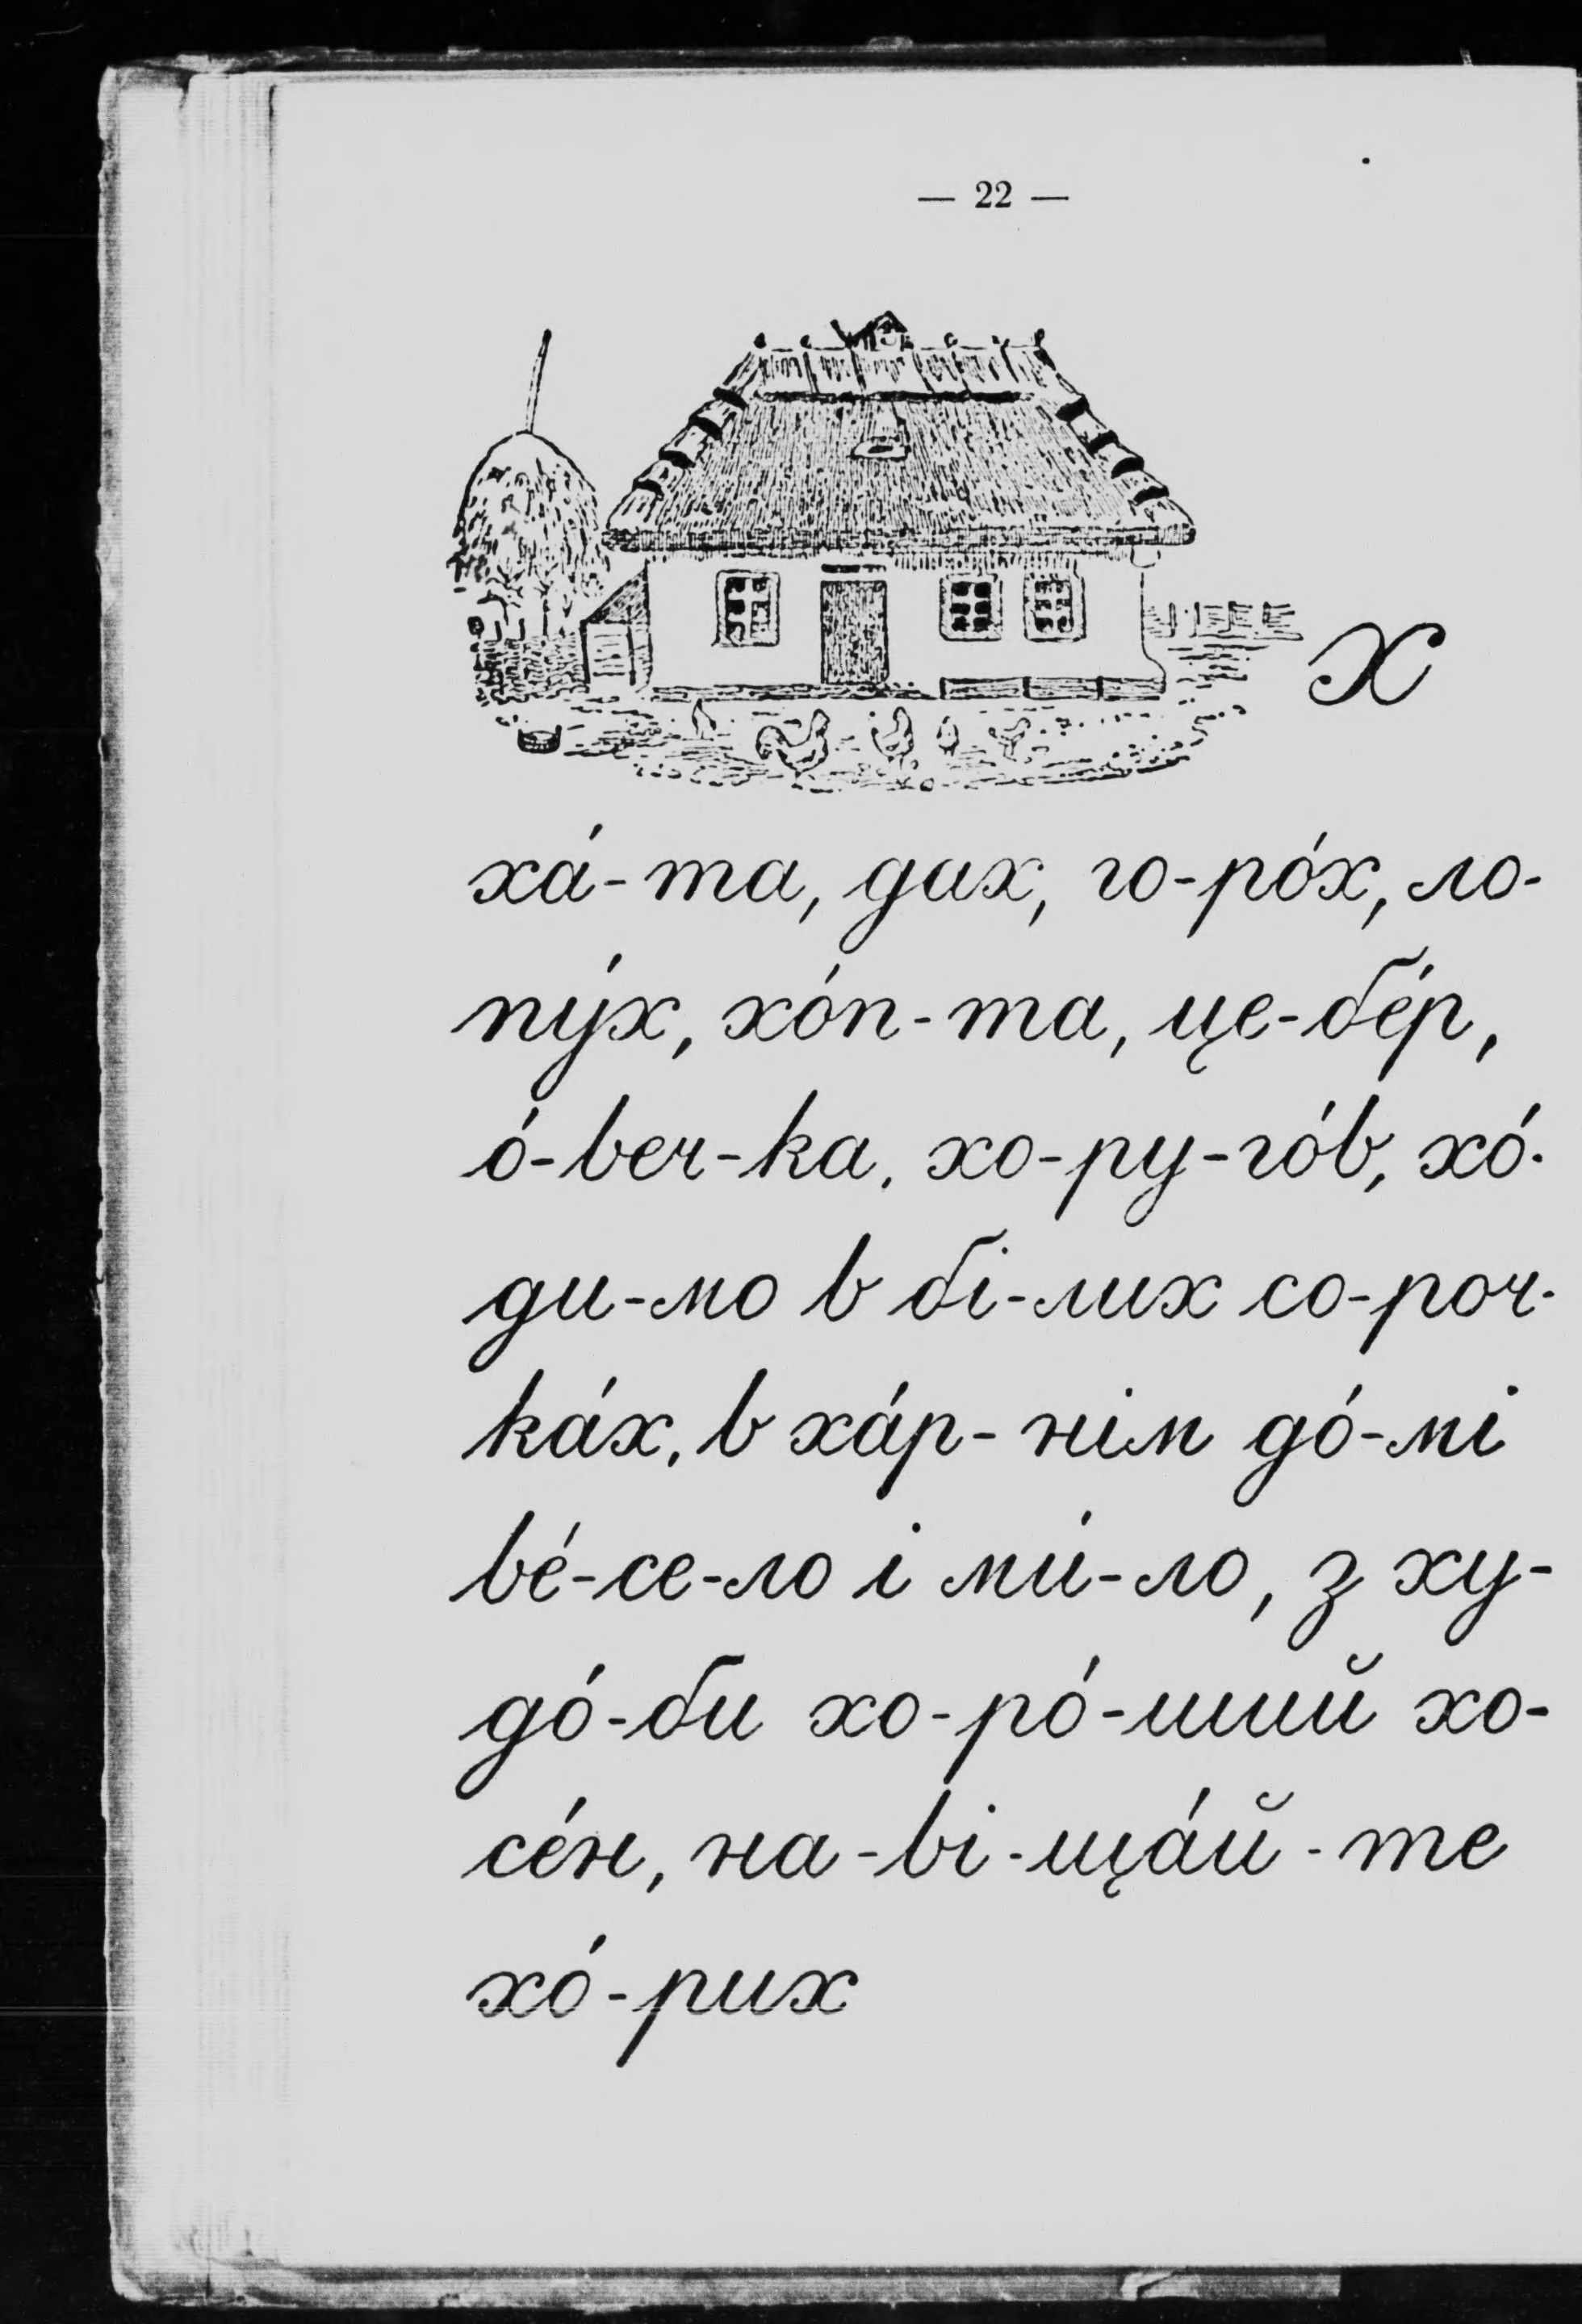 — 22 —
х
ха́-та, дах, го-ро́х, ло-
пу́х, хо́п-та, це-бе́р,
о́-веч-ка, хо-ру-го́в, хо́-
ди-мо в бі-лих со-роч-
ка́х, в ха́р-нім до́-мі
ве́-се-ло і ми́-ло, з ху-
до́-би хо-ро́-ший хо-
се́н, на-ві-ща́й-те
хо́-рих